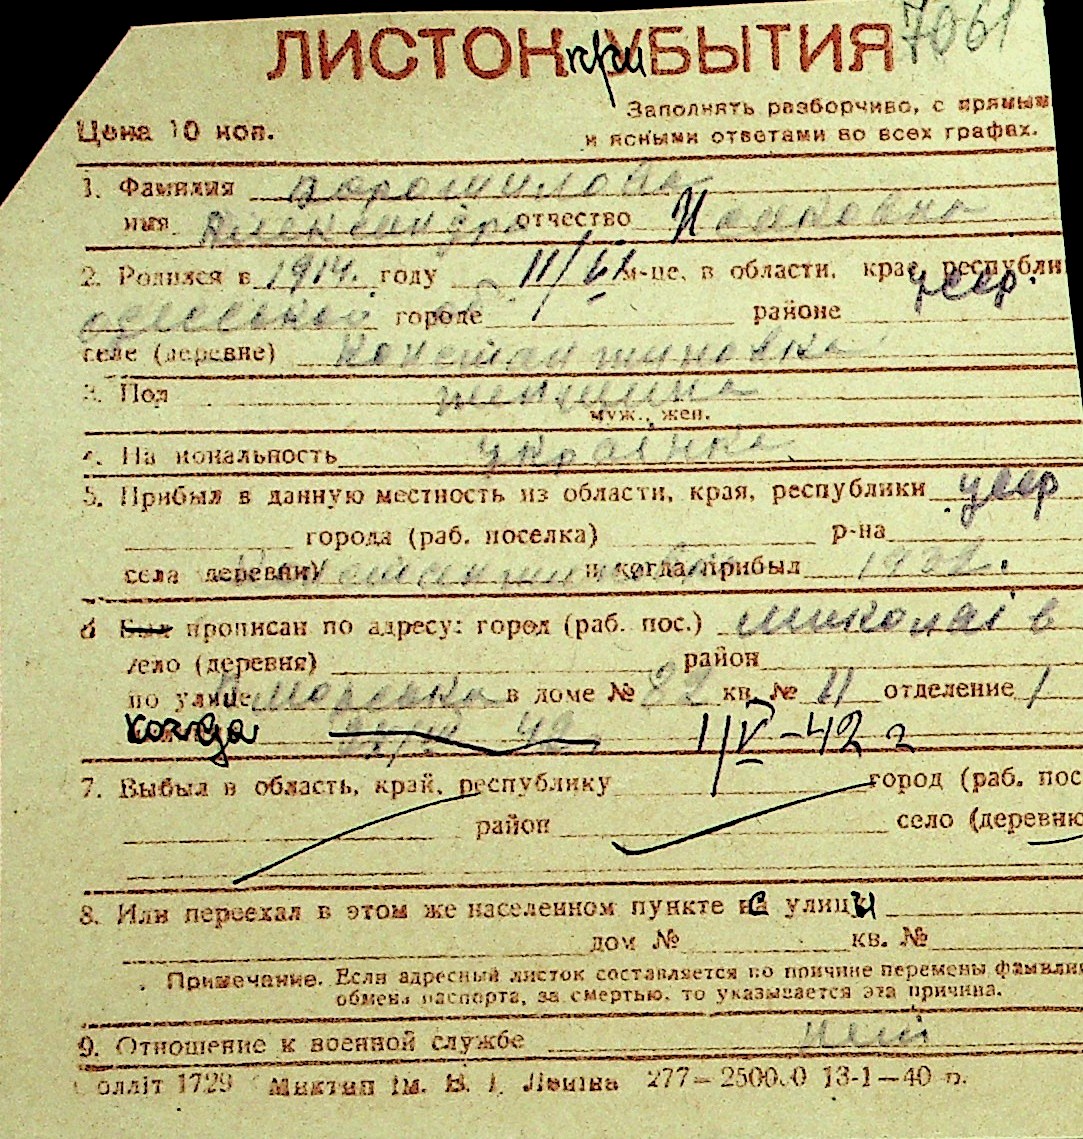 7061
ЛИСТОК при УБЫТИЯ
Заполнять разборчиво, с прямым
Цена 10 коп.
и ясными ответами во всех графах.
1. Фамилия Ворошилова
имя Александра отчество Ивановна
2. Родился в 1914. году 11/VI м-це, в области, крае, республи усср.
одесской об городе районе
селе (деревне) Константиновка
3. Пол женщина
муж., жен.
4. На иональность украинка
5. Прибыл в данную местность из области, края, республики усср
города (раб. поселка) р-на
села деревни) Константиновка и когда прибыл 1932.
6 Был прописан по адресу: город (раб. пос.) Миколаїв
село (деревня) район
по улице в доме № 22 кв. № 11 отделение 1
когда 1/IV-42 г
7. Выбыл в область, край, республику город (раб. пос
район село (деревню
8. Или переехал в этом же населенном пункте с улицы
дом № кв. №
Примечание. Если адресный листок составляется по причине перемены фамилии
обмена паспорта, за смертью, то указывается эта причина.
9. Отношение к военной службе нет
олліт 1729 Миктип ім. В. І. Леніна 277—2500.0 13-1—40 р.